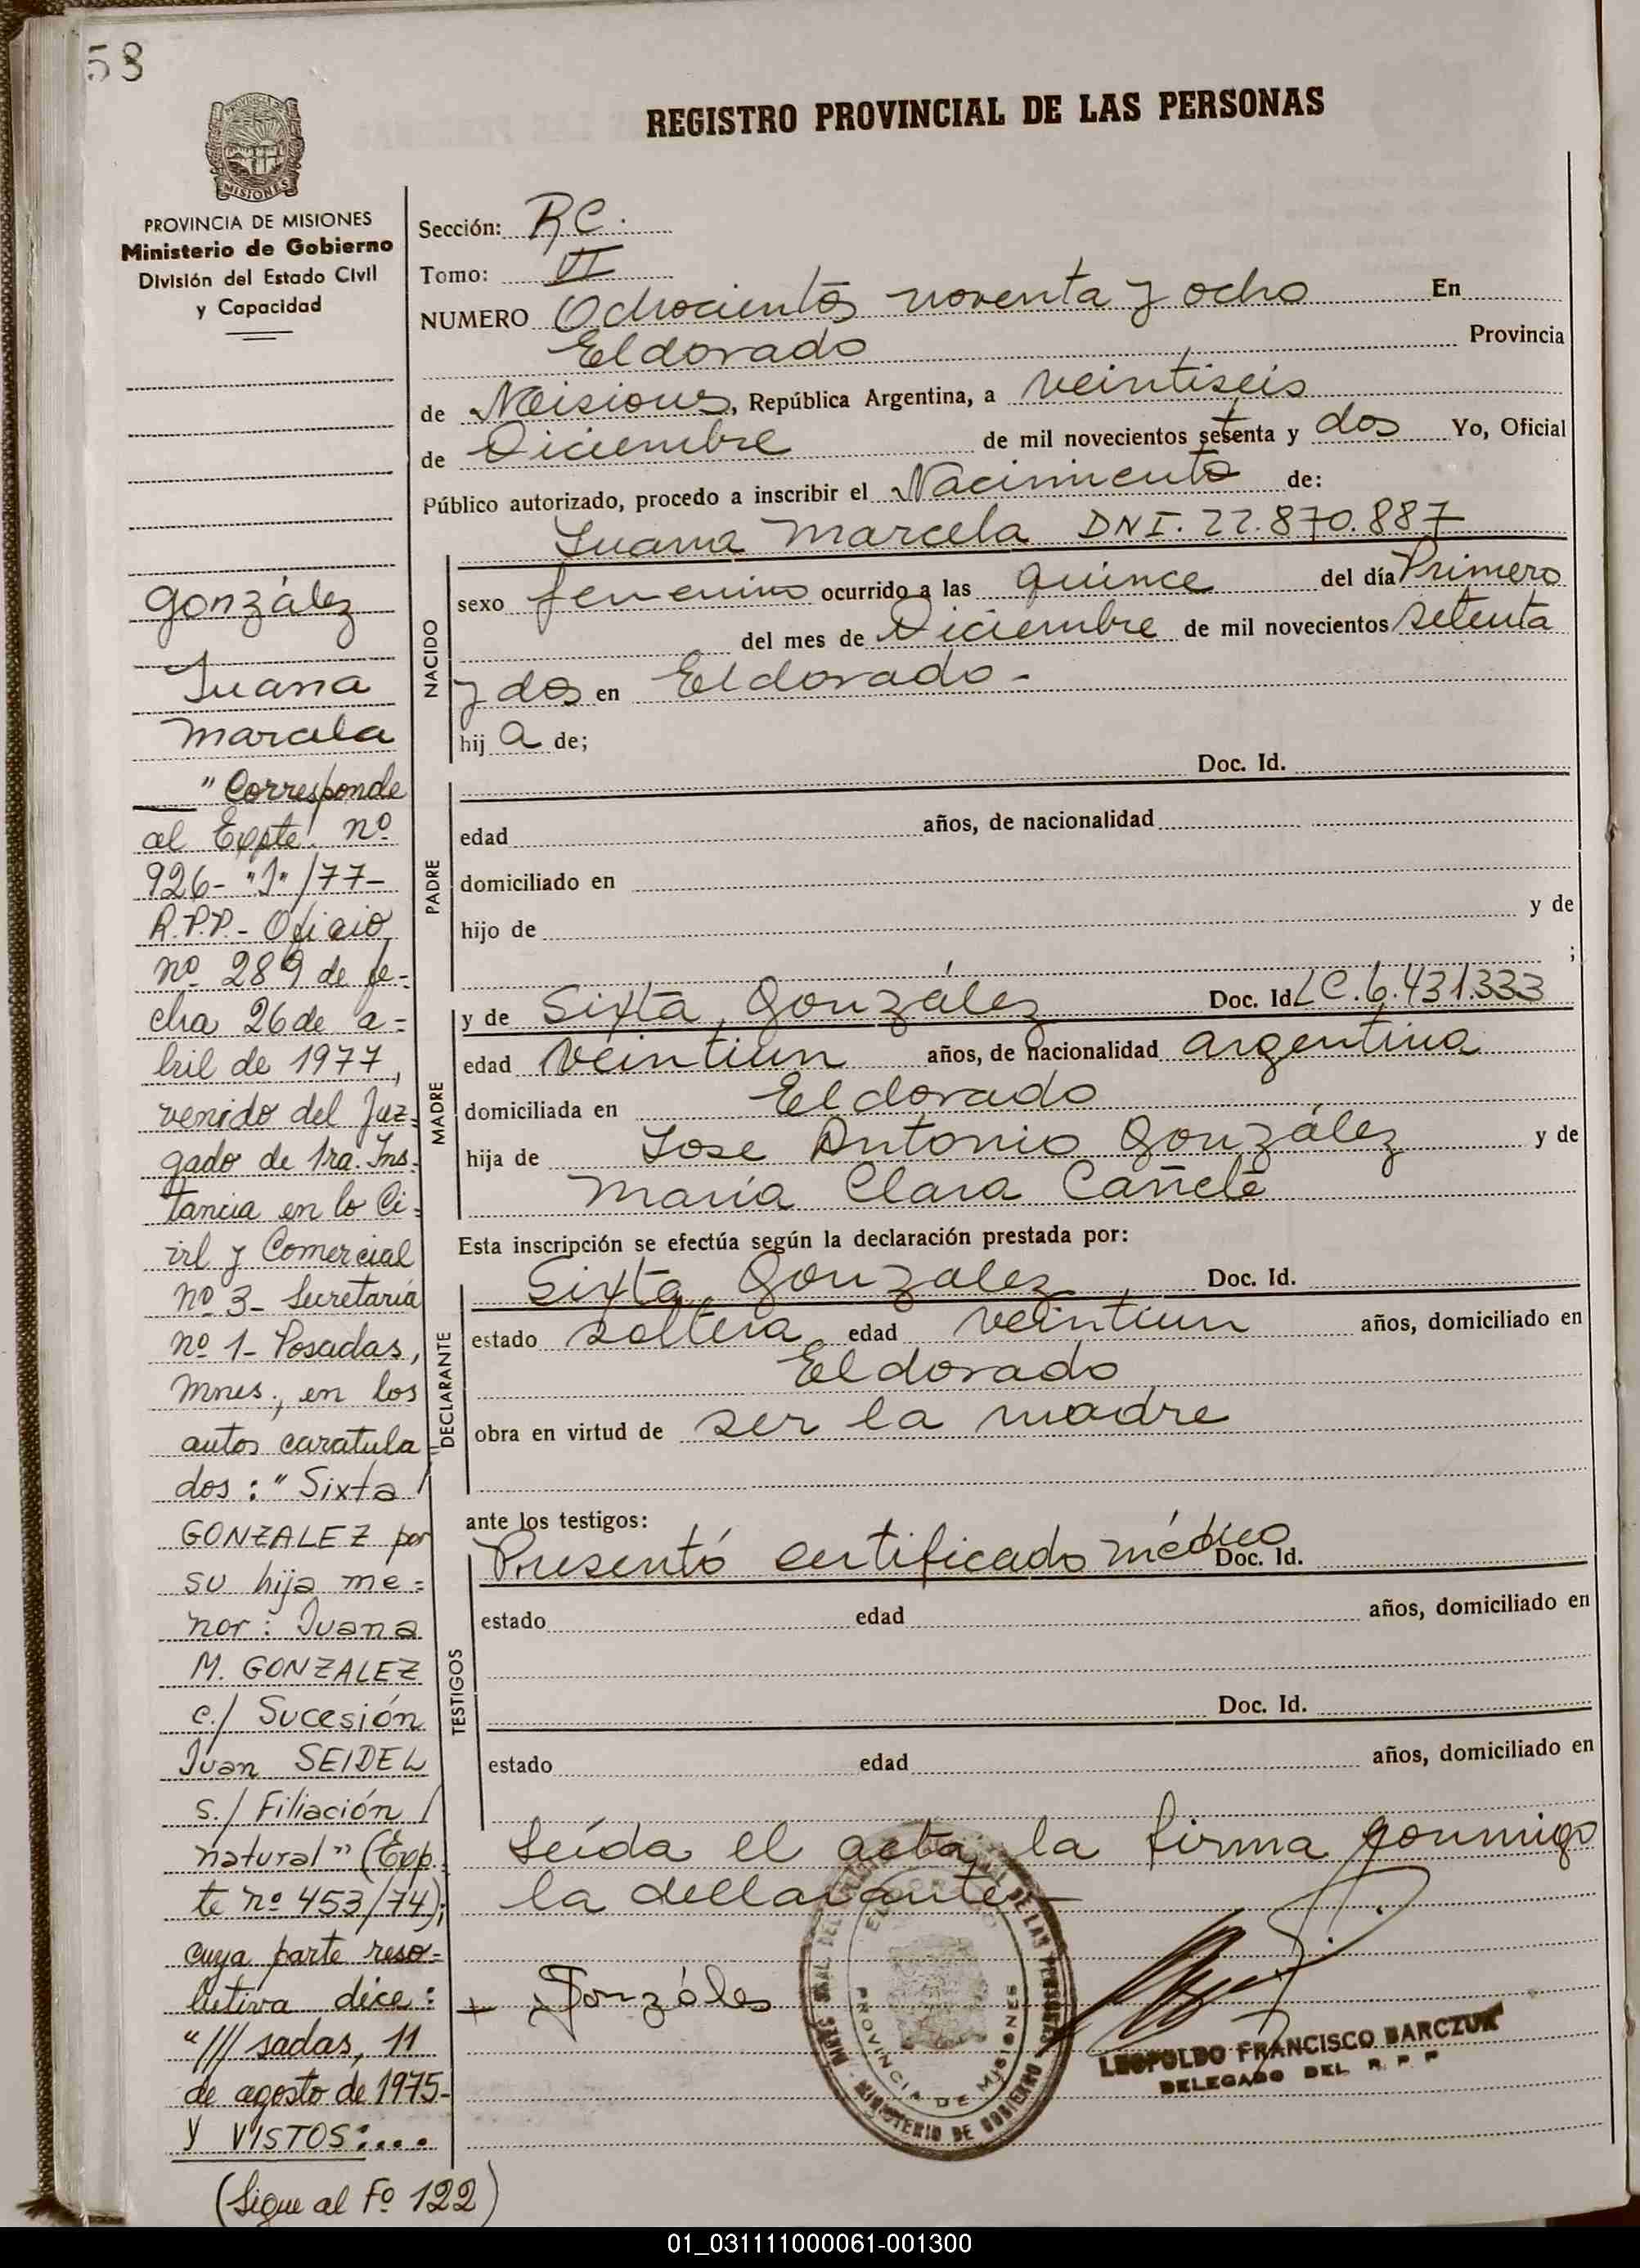 58
REGISTRO PROVINCIAL DE LAS PERSONAS
MISIONES
PROVINCIA DE MISIONES
Ministerio de Gobierno
División del Estado Civil
y Capacidad
González
Juana
Marcela
"Corresponde
al Expte. nº
926- "J"/77-
R.P.P.- Oficio
nº 289 de fe=
cha 26 de a=
bril de 1977,
venido del Juz=
gado de 1ra. Ins=
tancia en lo Ci=
vil y Comercial
nº 3- Secretaría
nº 1- Posadas,
Mnes., en los
autos caratula=
dos: "Sixta
GONZALEZ por
su hija me=
nor: Juana
M. GONZALEZ
c./ Sucesión
Juan SEIDEL
s./ Filiación
natural" (Exp.
te nº 453/74);
cuya parte reso=
lutiva dice:
"/// sadas, 11
de agosto de 1975-
Y VISTOS:....
(Sigue al Fº 122)
Sección: RC.
Tomo: VI
NUMERO Ochocientos noventa y ocho En
Eldorado Provincia
de Misiones, República Argentina, a veintiseis
de Diciembre de mil novecientos setenta y dos Yo, Oficial
Público autorizado, procedo a inscribir el Nacimiento de:
Juana Marcela DNI. 22.870.887
NACIDO
sexo femenino ocurrido a las quince del día Primero
del mes de Diciembre de mil novecientos setenta
y dos en Eldorado-
hij a de;
PADRE
Doc. Id.
edad años, de nacionalidad
domiciliado en
hijo de y de
;
MADRE
y de Sixta González Doc. Id LC.6.431.333
edad veintiun años, de nacionalidad argentina
domiciliada en Eldorado
hija de Jose Antonio González y de
María Clara Cañete
Esta inscripción se efectúa según la declaración prestada por:
DECLARANTE
Sixta Gonzalez Doc. Id.
estado soltera edad veintiun años, domiciliado en
Eldorado
obra en virtud de ser la madre
ante los testigos:
TESTIGOS
Presentó certificado médico Doc. Id.
estado edad años, domiciliado en
Doc. Id.
estado edad años, domiciliado en
Leída el acta, la firma conmigo
la declarante-
+ Gonzáles
PROVINCIA DE MISIONES
MINISTERIO DE GOBIERNO
LEOPOLDO FRANCISCO BARCZUK
DELEGADO DEL R. P. P
01_031111000061-001300